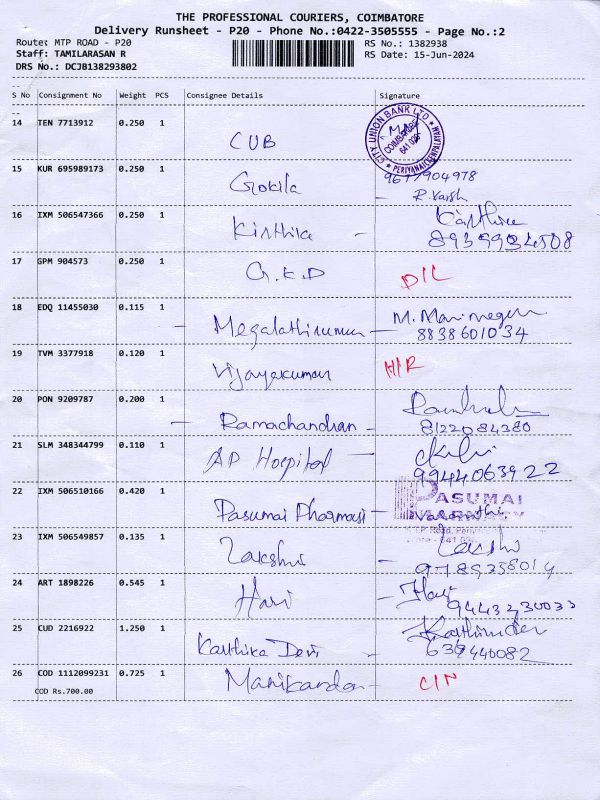 THE PROFESSIONAL COURIERS, COIMBATORE
Delivery Runsheet - P20 - Phone No.:0422-3505555 - Page No.:2
Route: MTP ROAD - P20 RS No.: 1382938
Staff: TAMILARASAN R RS Date: 15-Jun-2024
DRS No.: DCJB138293802
S No Consignment No Weight PCS Consignee Details Signature
14 TEN 7713912 0.250 1 CUB
CITY UNION BANK LTD
COIMBATORE
PERIYANAICKENPALAYAM
15 KUR 695989173 0.250 1 Gokila
R.Varsh
16 IXM 506547366 0.250 1 Kirthika - Karthika
8939934508
17 GPM 904573 0.250 1 G.K.D D/L
18 EDQ 11455030 0.115 1 - Megalathirumun -
8838601034
19 TVM 3377918 0.120 1 Vijayakumar H/R
20 PON 9209787 0.200 1 - Ramachandran -
8122084380
21 SLM 348344799 0.110 1 AP Hospital -
9944063922
22 IXM 506510166 0.420 1 Pasumai Pharmasi -
PASUMAI
PHARMACY
23 IXM 506549857 0.135 1 Lakshmi -
9789358014
24 ART 1898226 0.545 1 Hari - Hari
9443230033
25 CUD 2216922 1.250 1 Karthika Devi -
639440082
26 COD 1112099231 0.725 1 Manikandan - C/N
COD Rs.700.00